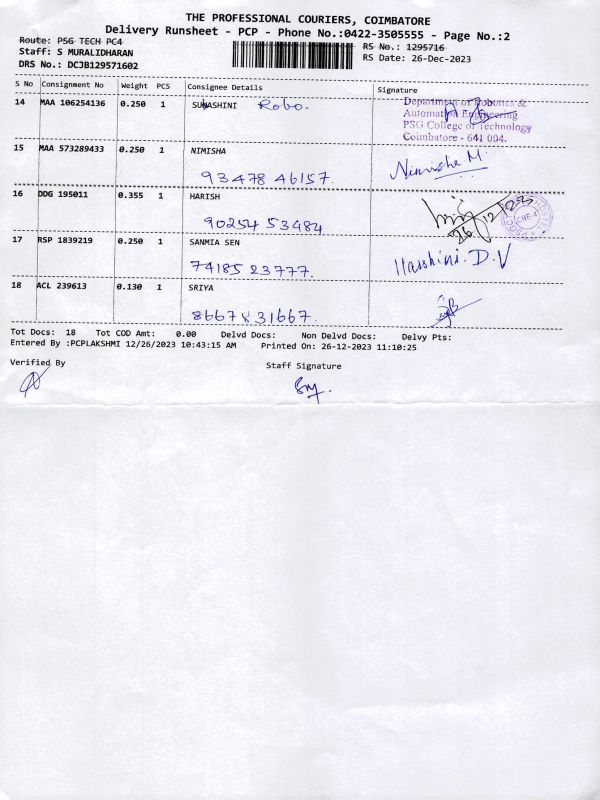 THE PROFESSIONAL COURIERS, COIMBATORE
Delivery Runsheet - PCP - Phone No.:0422-3505555 - Page No.:2
Route: PSG TECH PC4
RS No.: 1295716
Staff: S MURALIDHARAN
RS Date: 26-Dec-2023
DRS No.: DCJB129571602
S No Consignment No Weight PCS Consignee Details Signature
14 MAA 106254136 0.250 1 SUBASHINI Robo.
Department of Robotics &
Automation Engineering
PSG College of Technology
Coimbatore - 641 004.
15 MAA 573289433 0.250 1 NIMISHA
93478 46157.
Nimisha M
16 DDG 195011 0.355 1 HARISH
90254 53484
26/12/23
17 RSP 1839219 0.250 1 SANMIA SEN
74185 23777.
Harshini. D.V
18 ACL 239613 0.130 1 SRIYA
86678 31667.
Tot Docs: 18 Tot COD Amt: 0.00 Delvd Docs: Non Delvd Docs: Delvy Pts:
Entered By :PCPLAKSHMI 12/26/2023 10:43:15 AM Printed On: 26-12-2023 11:10:25
Verified By
Staff Signature